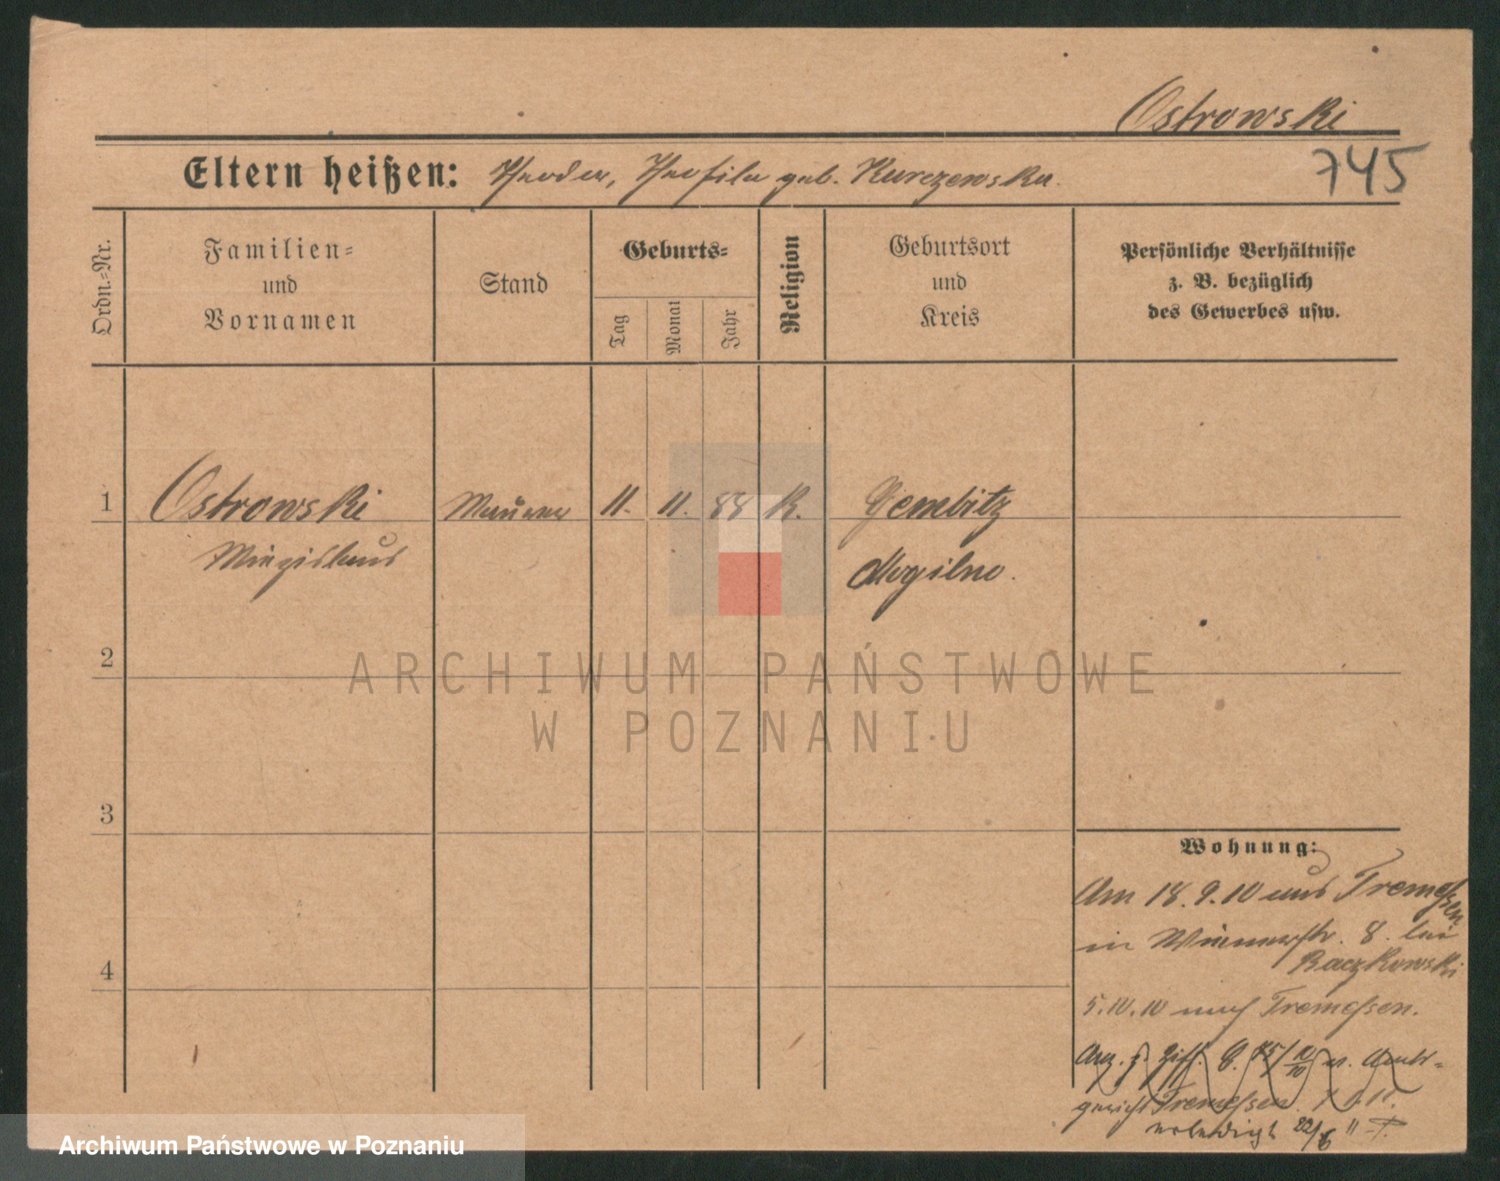 Ostrowski
745
Eltern heißen: Theodor, Theofila geb. Kurczewska.
Ordn.-Nr.
Familien-
und
Vornamen
Stand
Geburts-
Tag
Monat
Jahr
Religion
Geburtsort
und
Kreis
Persönliche Verhältnisse
z. B. bezüglich
des Gewerbes usw.
1
Ostrowski
Maurer
11.
11.
88
K.
Gembitz
Miezislaus
Mogilno.
2
3
4
Wohnung:
Am 18.9.10 aus Tremessen
in Wienerstr. 8. bei
Baczkowski
5.10.10 nach Tremessen.
Anz. z. Ziff. 8. 10/10 u. Amts-
gericht Tremessen.
erledigt 22/6 11
ARCHIWUM PAŃSTWOWE
W POZNANIU
Archiwum Państwowe w Poznaniu